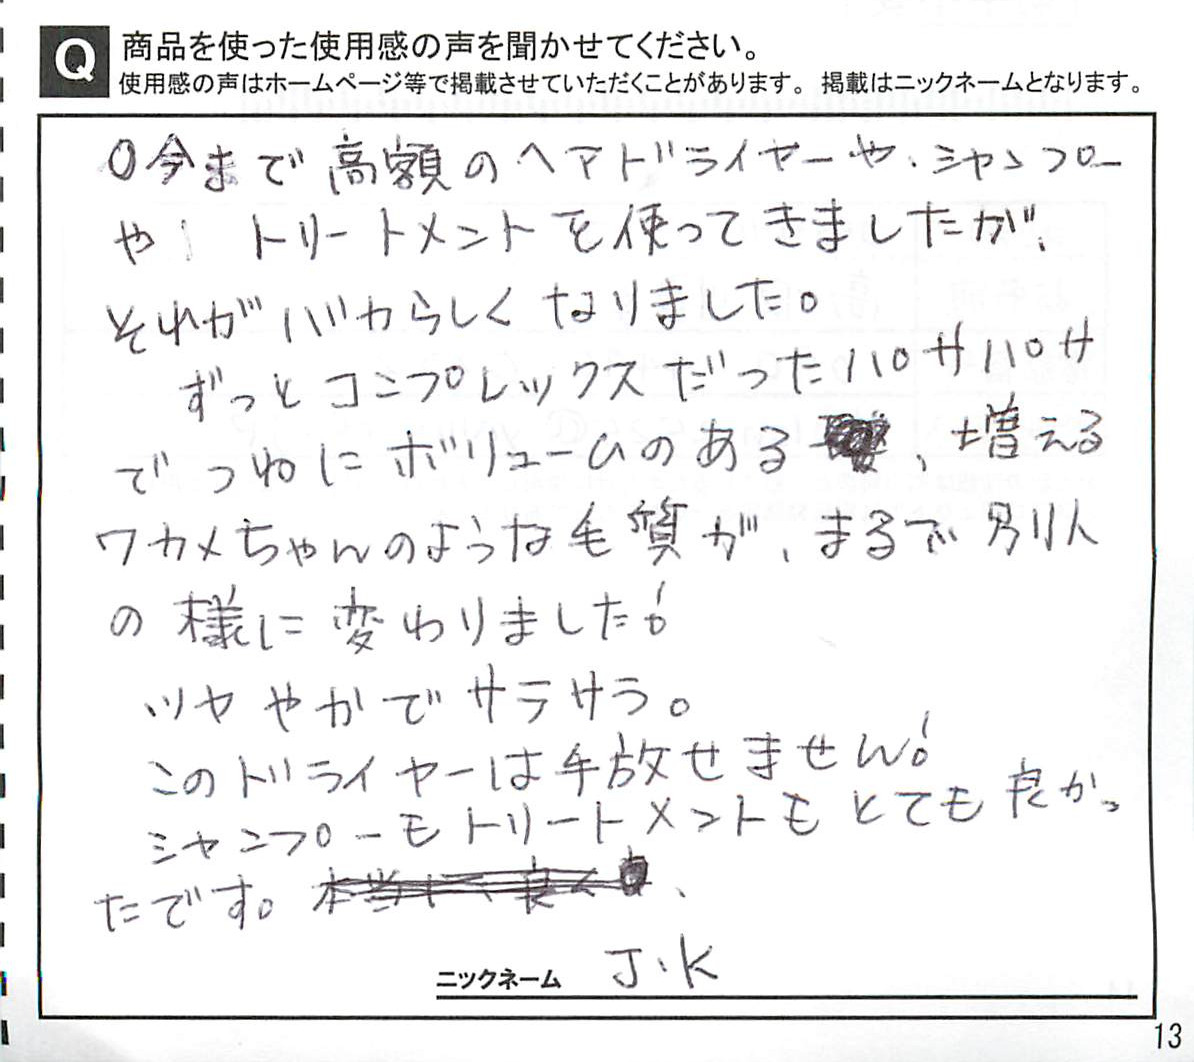 Q 商品を使った使用感の声を聞かせてください。
使用感の声はホームページ等で掲載させていただくことがあります。掲載はニックネームとなります。
○今まで高額のヘアドライヤーや、シャンプー
や トリートメントを使ってきましたが、
それがバカらしくなりました。
ずっとコンプレックスだったパサパサ
でつねにボリュームのある、増える
ワカメちゃんのような毛質が、まるで別人
の様に変わりました!
ツヤやかでサラサラ。
このドライヤーは手放せません!
シャンプーもトリートメントもとても良かっ
たです。
ニックネーム J.K
13